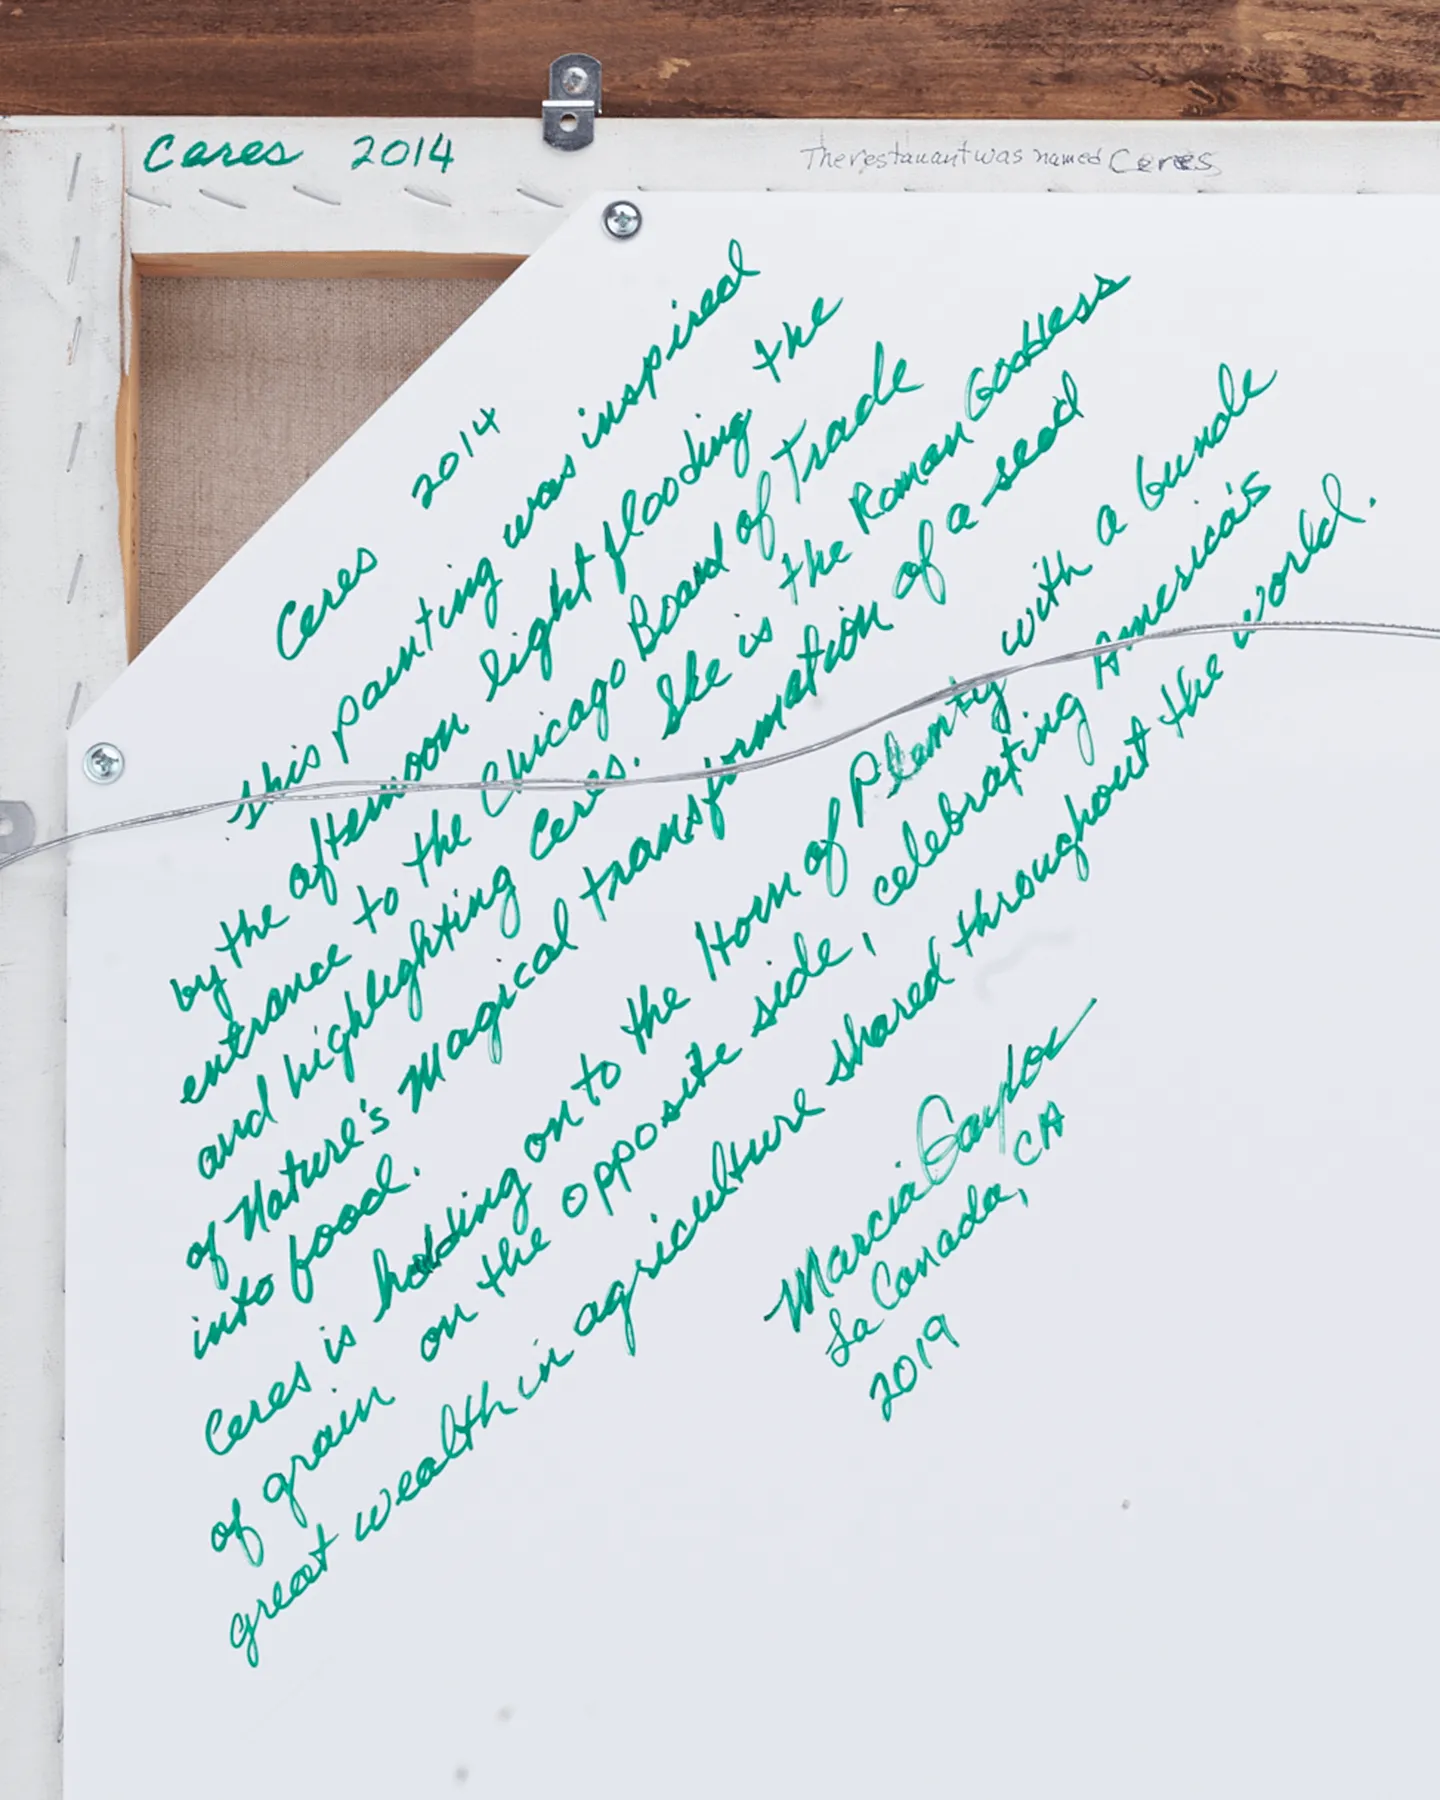 Ceres 2014
The restauant was named Ceres
Ceres 2014
This painting was inspired
by the afternoon light flooding the
entrance to the Chicago Board of Trade
and highlighting Ceres. She is the Roman Goddess
of Nature's Magical transformation of a seed
into food.
Ceres is holding on to the Horn of Plenty with a bundle
of grain on the opposite side, celebrating America's
great wealth in agriculture shared throughout the world.
Marcia Gaylor
La Canada, CA
2019